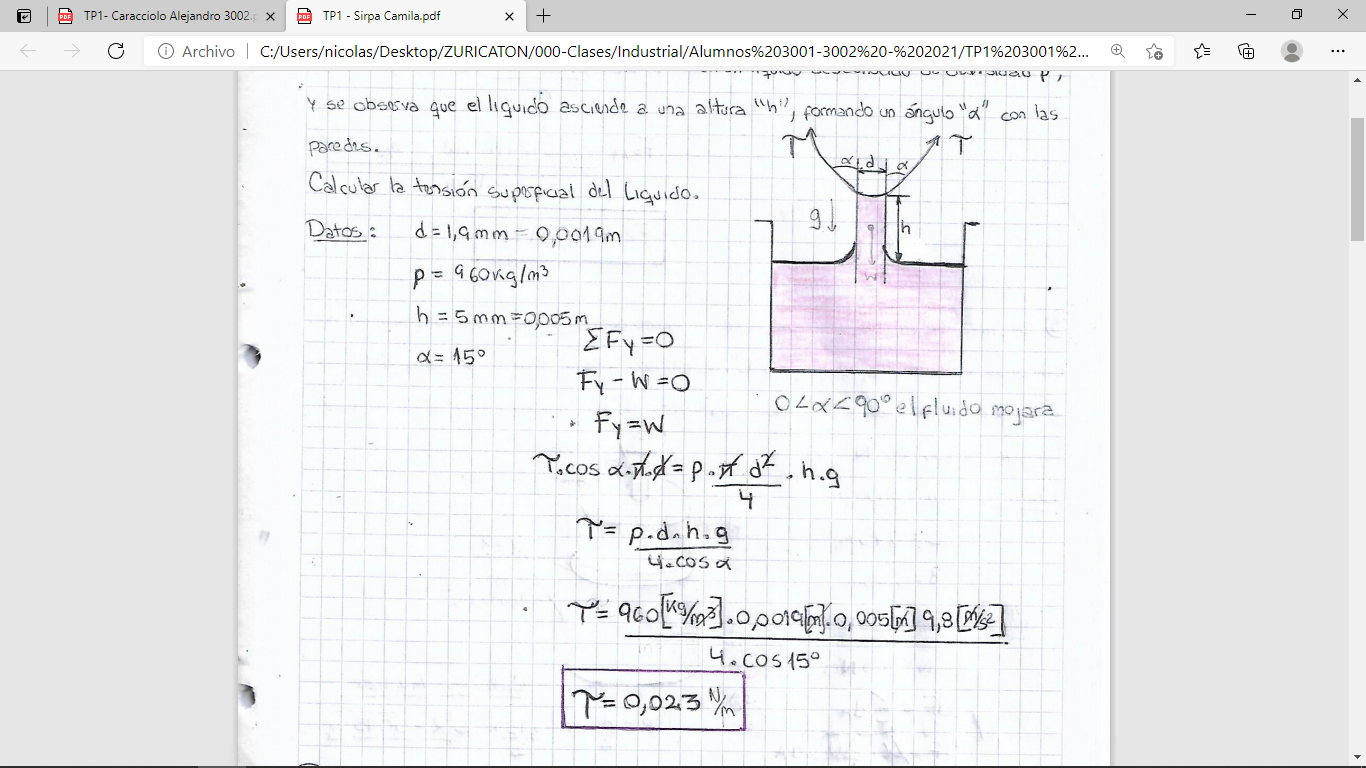 TP1- Caracciolo Alejandro 3002.p
TP1 - Sirpa Camila.pdf
Archivo
C:/Users/nicolas/Desktop/ZURICATON/000-Clases/Industrial/Alumnos%203001-3002%20-%202021/TP1%203001%2...
y se observa que el liquido asciende a una altura "h", formando un ángulo "α" con las
paredes.
Calcular la tensión superficial del Liquido.
T α d α T
g h
W
Datos: d = 1,9 mm - 0,0019m
ρ = 960 Kg/m³
h = 5 mm = 0,005m
α = 15°
ΣFy = 0
Fy - W = 0
Fy = W
0 < α < 90° el fluido mojara
T.cos α.π.d = ρ.π d²/4 . h.g
T = ρ.d.h.g / 4.cos α
T = 960[Kg/m³].0,0019[m].0,005[m] 9,8[m/s²] / 4.cos 15°
T = 0,023 N/m